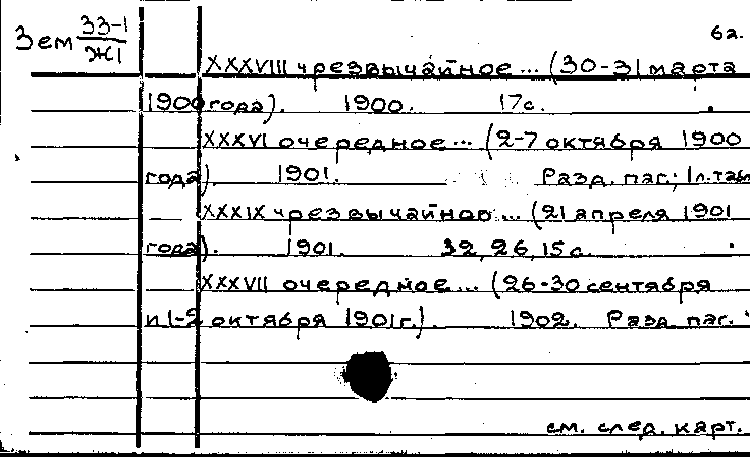 Зем 33-1
Ж1
6а.
XXXVIII чрезвычайное ... (30-31 марта
1900 года). 1900. 17с.
XXXVI очередное ... (2-7 октября 1900
года). 1901. Разд. паг.; 1л. табл
XXXIX чрезвычайное ... (21 апреля 1901
года). 1901. 32, 26, 15 с.
XXXVII очередное ... (26-30 сентября
и 1-2 октября 1901 г.). 1902. Разд. паг.
см. след. карт.